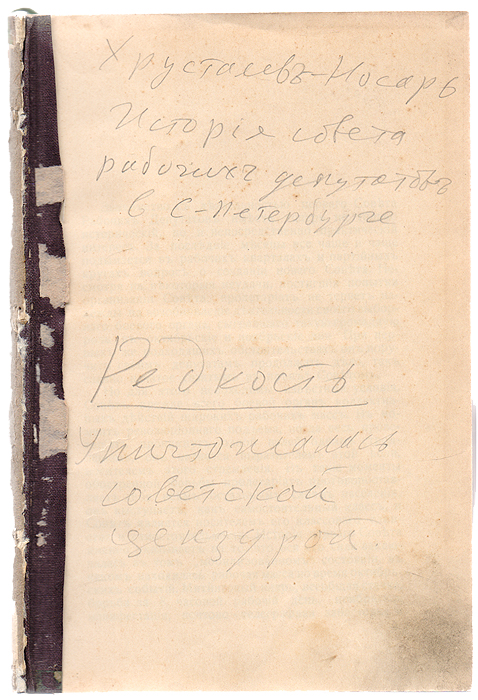 Хрусталевъ-Носарь
Исторія совета
рабочихъ депутатовъ
в С-Петербурге
Редкость
Уничтожалась
советской
цензурой